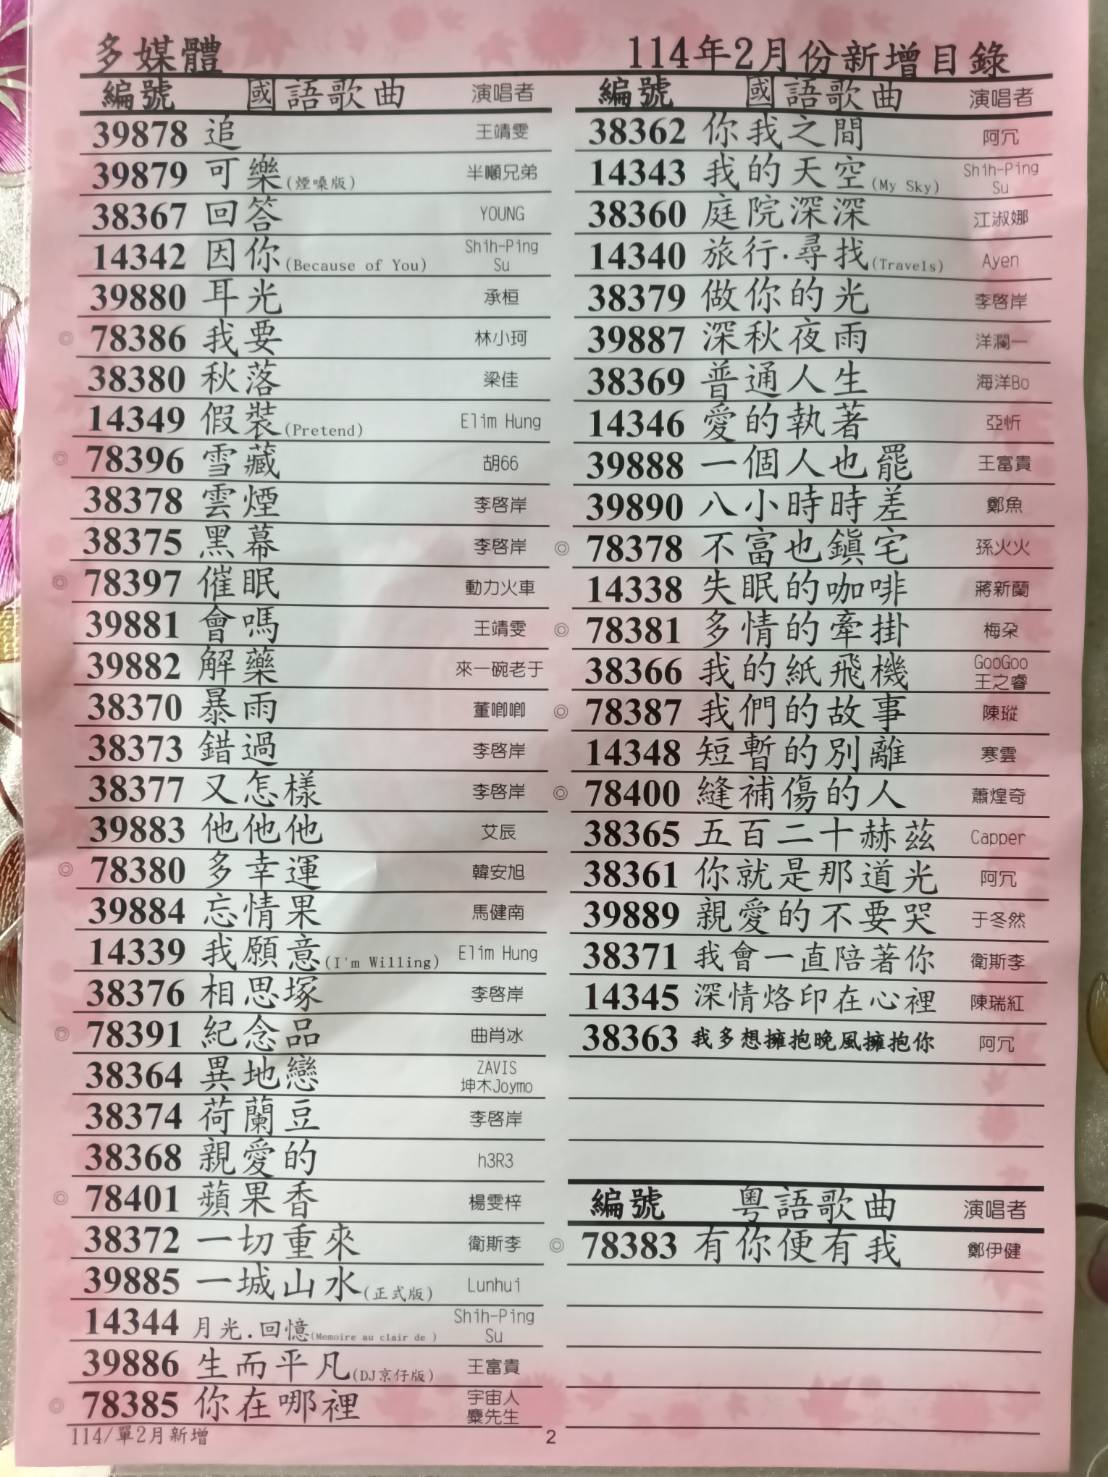 多媒體
114年2月份新增目錄
編號 國語歌曲 演唱者
39878 追 王靖雯
39879 可樂(煙嗓版) 半噸兄弟
38367 回答 YOUNG
14342 因你(Because of You) Shih-Ping Su
39880 耳光 承桓
◎ 78386 我要 林小珂
38380 秋落 梁佳
14349 假裝(Pretend) Elim Hung
◎ 78396 雪藏 胡66
38378 雲煙 李啓岸
38375 黑幕 李啓岸
◎ 78397 催眠 動力火車
39881 會嗎 王靖雯
39882 解藥 來一碗老于
38370 暴雨 董唧唧
38373 錯過 李啓岸
38377 又怎樣 李啓岸
39883 他他他 艾辰
◎ 78380 多幸運 韓安旭
39884 忘情果 馬健南
14339 我願意(I'm Willing) Elim Hung
38376 相思塚 李啓岸
◎ 78391 紀念品 曲肖冰
38364 異地戀 ZAVIS 坤木Joymo
38374 荷蘭豆 李啓岸
38368 親愛的 h3R3
◎ 78401 蘋果香 楊雯梓
38372 一切重來 衛斯李
39885 一城山水(正式版) Lunhui
14344 月光.回憶(Memoire au clair de ) Shih-Ping Su
39886 生而平凡(DJ京仔版) 王富貴
◎ 78385 你在哪裡 宇宙人 麋先生
編號 國語歌曲 演唱者
38362 你我之間 阿冗
14343 我的天空(My Sky) Shih-Ping Su
38360 庭院深深 江淑娜
14340 旅行.尋找(Travels) Ayen
38379 做你的光 李啓岸
39887 深秋夜雨 洋瀾一
38369 普通人生 海洋Bo
14346 愛的執著 亞忻
39888 一個人也罷 王富貴
39890 八小時時差 鄭魚
◎ 78378 不富也鎮宅 孫火火
14338 失眠的咖啡 蔣新蘭
◎ 78381 多情的牽掛 梅朶
38366 我的紙飛機 GooGoo 王之睿
◎ 78387 我們的故事 陳瑽
14348 短暫的別離 寒雲
◎ 78400 縫補傷的人 蕭煌奇
38365 五百二十赫茲 Capper
38361 你就是那道光 阿冗
39889 親愛的不要哭 于冬然
38371 我會一直陪著你 衛斯李
14345 深情烙印在心裡 陳瑞紅
38363 我多想擁抱晚風擁抱你 阿冗
編號 粵語歌曲 演唱者
◎ 78383 有你便有我 鄭伊健
114/單2月新增
2